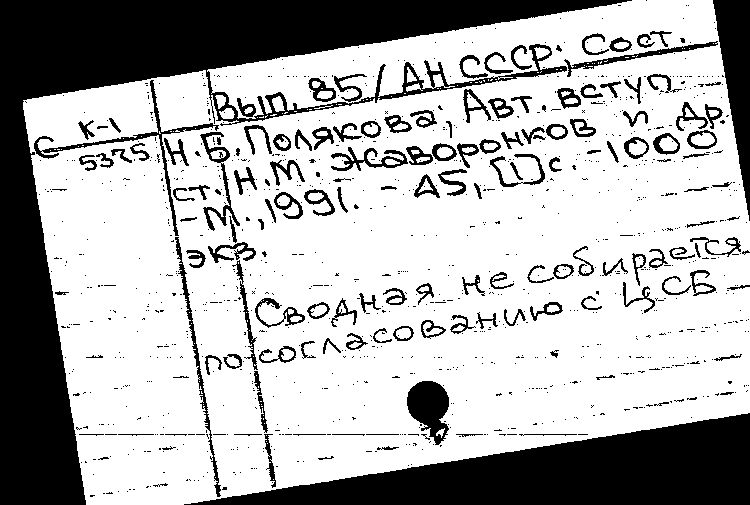 Вып. 85 / АН СССР; Сост.
С К-1
5325 Н.Б. Полякова; Авт. вступ.
ст. Н.М. Жаворонков и др.
- М., 1991. - 45, [1] с. - 1000
экз.
Сводная не собирается
по согласованию с ЦСБ